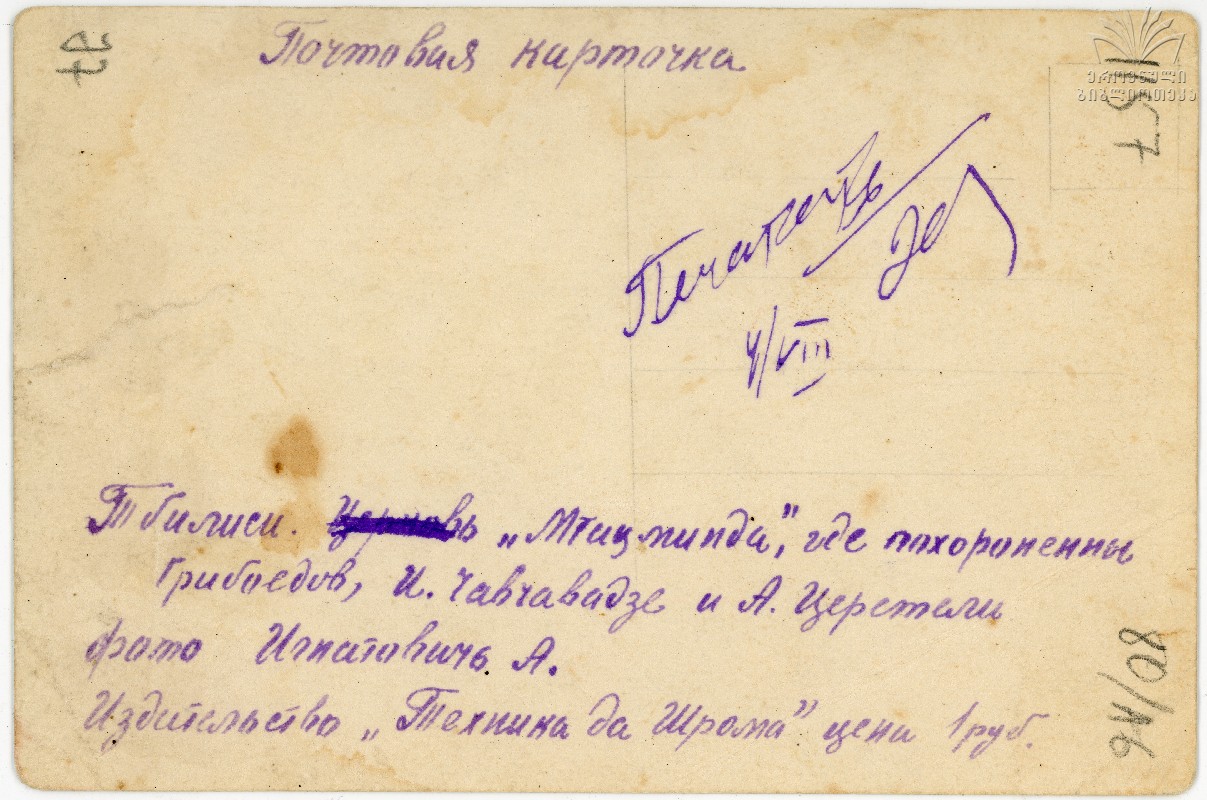 Почтовая карточка
ეროვნული
ბიბლიოთეკა
1157
Печатать
4/VIII
Тбилиси. Церковь „Мтацминда“, где похороненны
Грибоедов, И. Чавчавадзе и А. Церетели
фото Игнатовичь А.
Издательство „Техника да Шрома“ цена 1 руб.